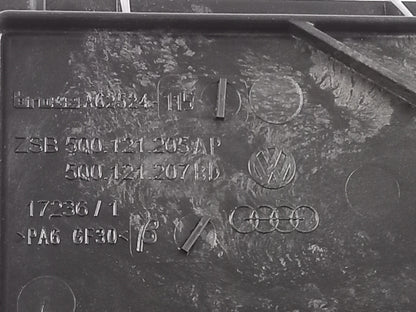 A62524- 11E
ZSB 5Q0.121.205AP
5Q0.121.207BD
17236/1
>PA6 GF30<